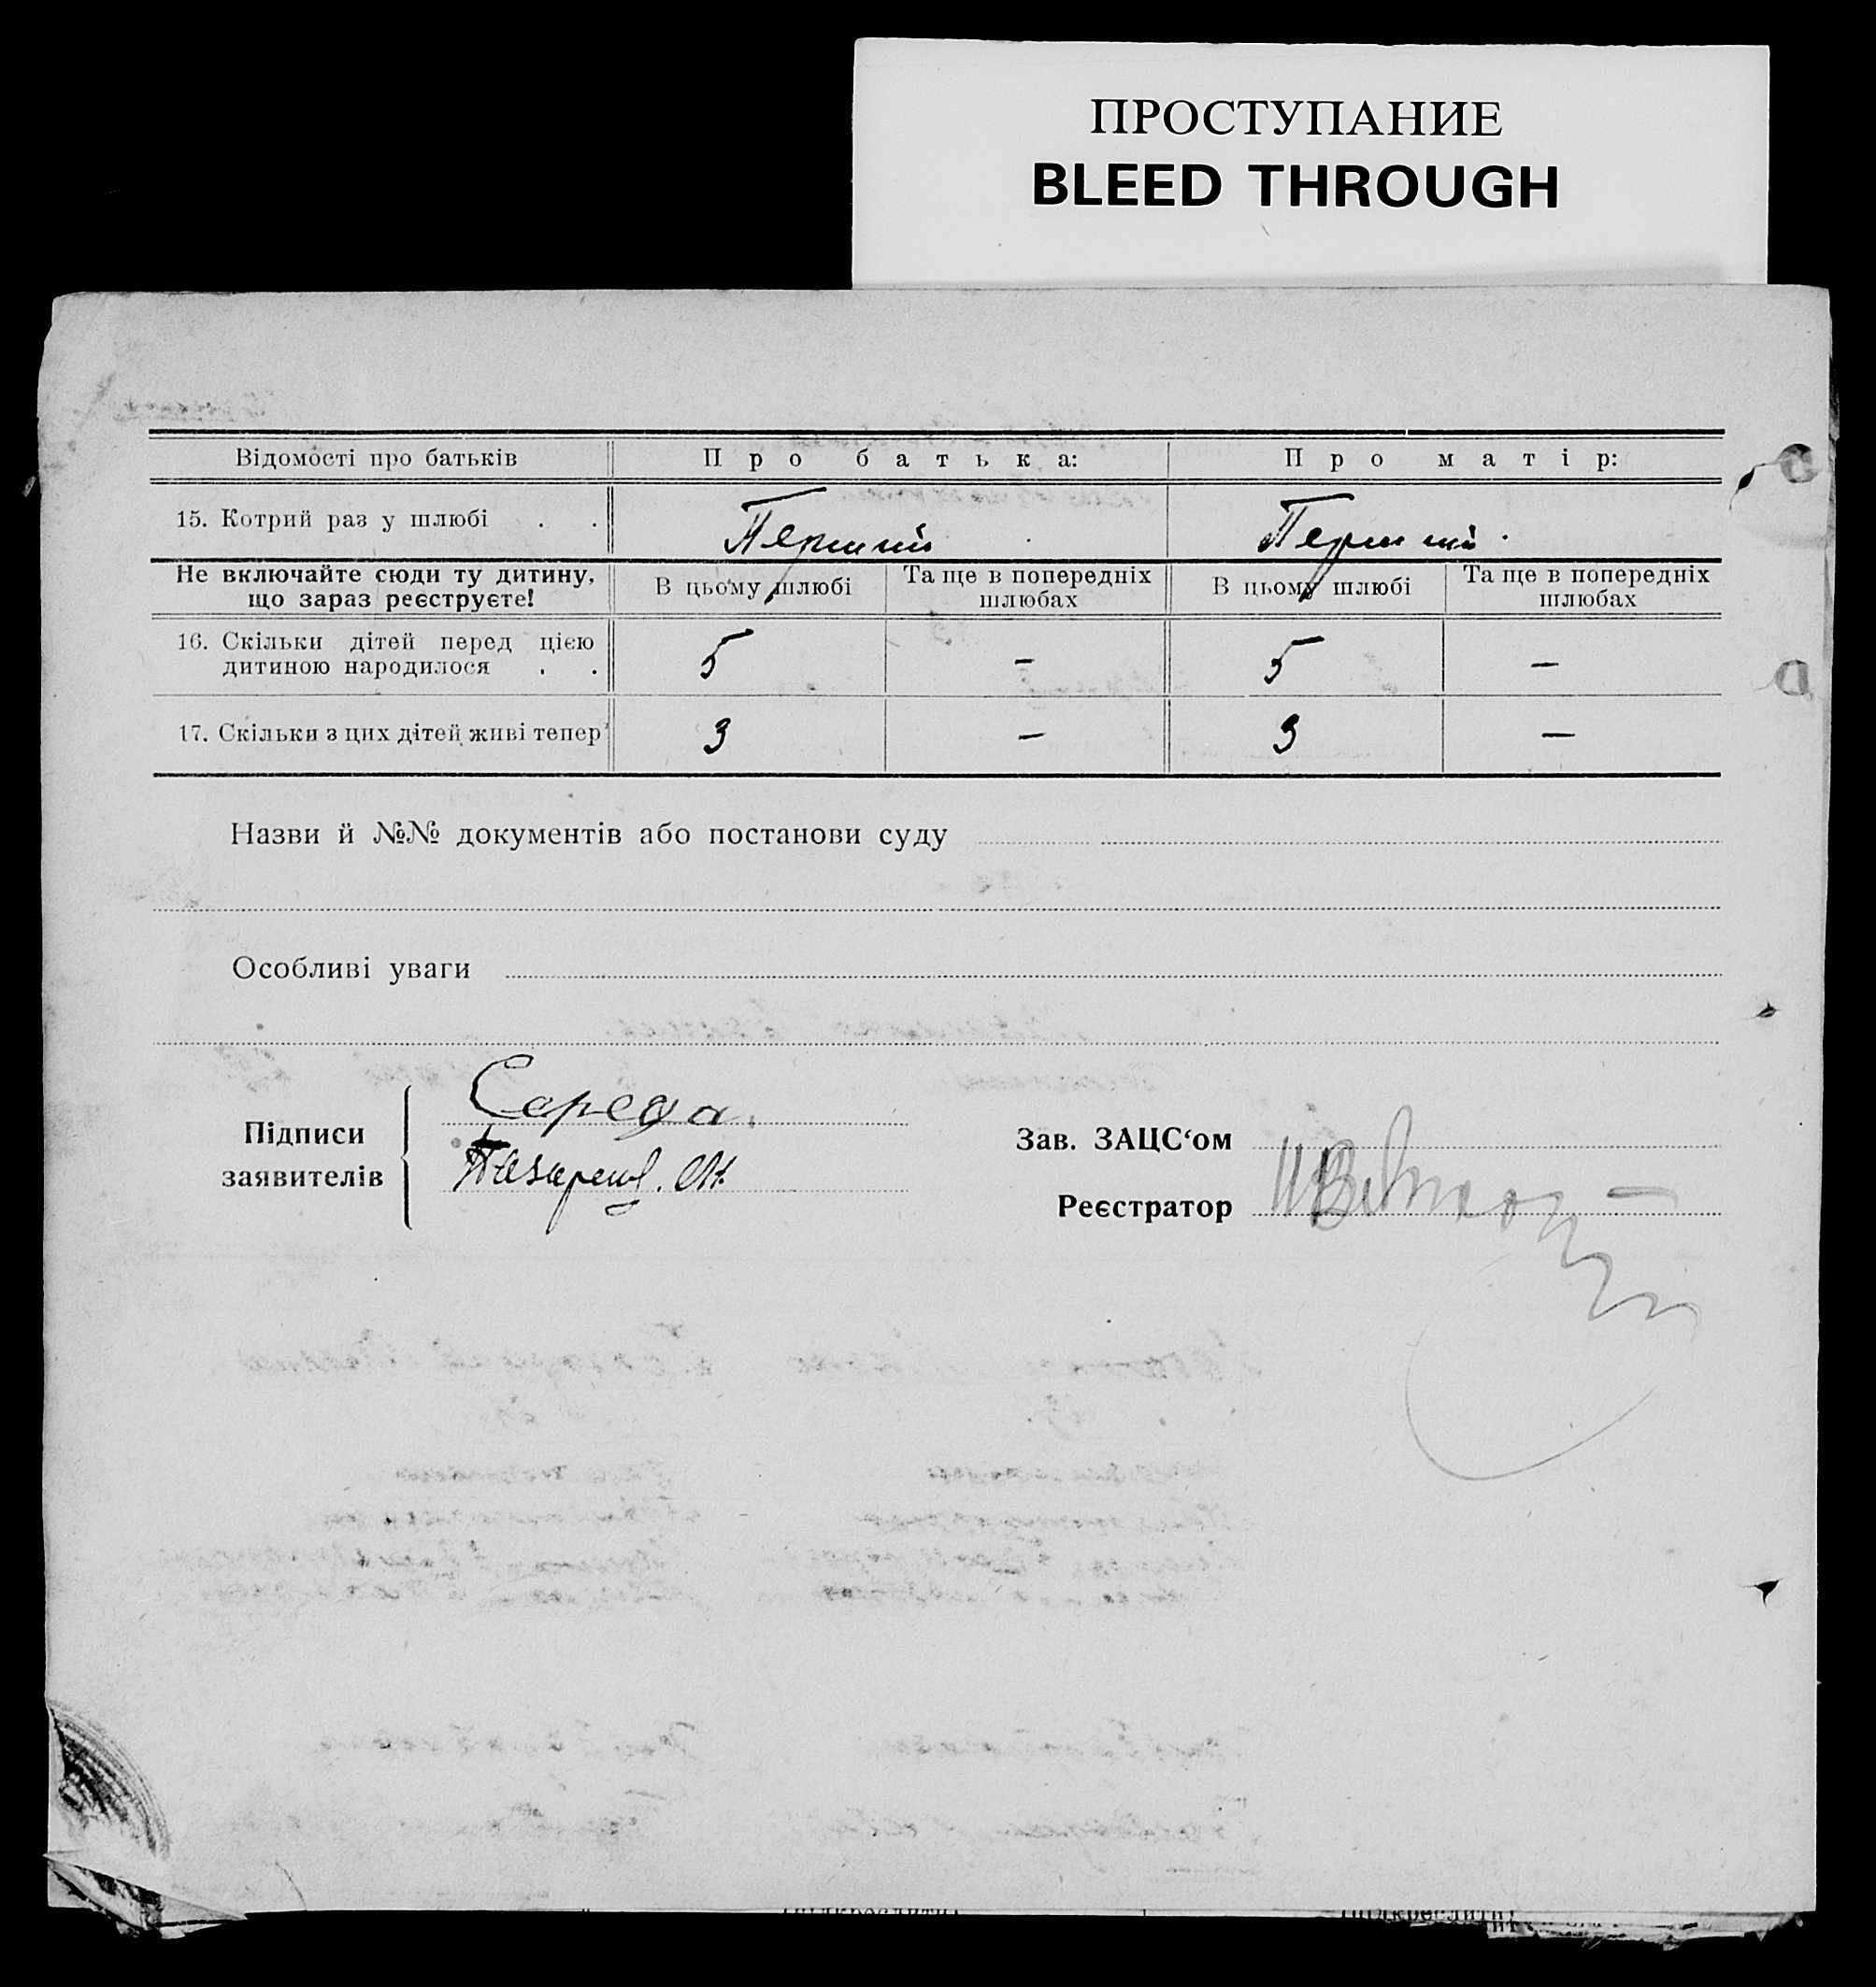 ПРОСТУПАНИЕ
BLEED THROUGH
Відомості про батьків Про батька: Про матір:
15. Котрий раз у шлюбі . . Перший Перший.
Не включайте сюди ту дитину, що зараз реєструєте! В цьому шлюбі Та ще в попередніх шлюбах В цьому шлюбі Та ще в попередніх шлюбах
16. Скільки дітей перед цією
дитиною народилося . . 5 — 5 —
17. Скільки з цих дітей живі тепер 3 — 3 —
Назви й №№ документів або постанови суду
Особливі уваги
Підписи заявителів
Середа
Зав. ЗАЦС‘ом
Реєстратор
(підкреслити) (підкреслити)